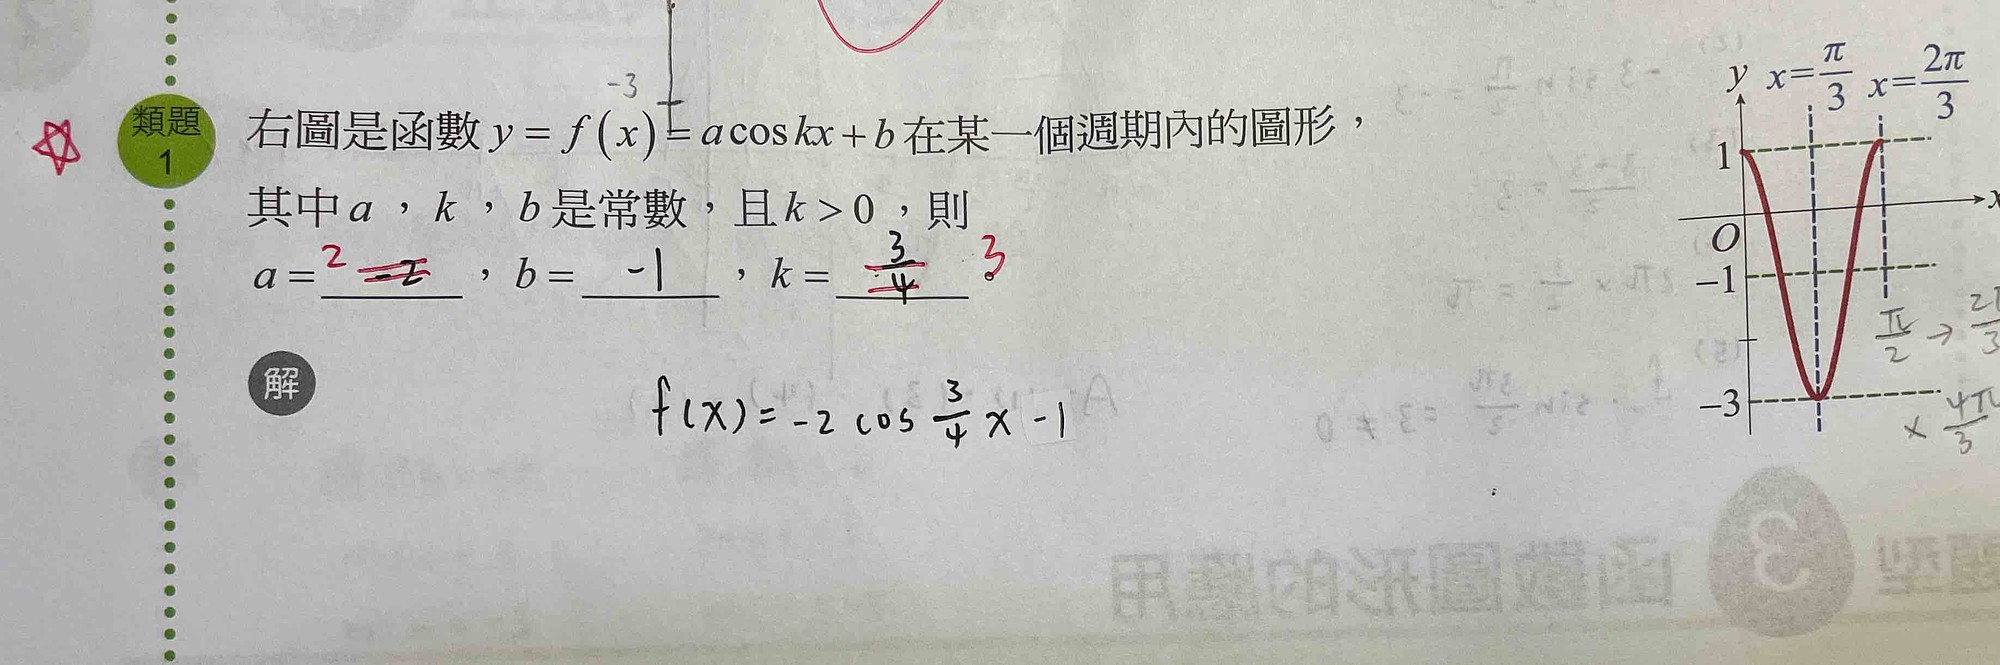 -3
類題
1
右圖是函數 y = f(x) = a cos kx + b 在某一個週期內的圖形，
其中 a ， k ， b 是常數，且 k > 0 ，則
a = 2 -2 ， b = -1 ， k = 3/4 3
解
f(x) = -2 cos 3/4 x -1
y x=π/3 x=2π/3
1
x
O
-1
π/2 → 2π/3
-3
x 4π/3
函數圖形的應用 3 題型